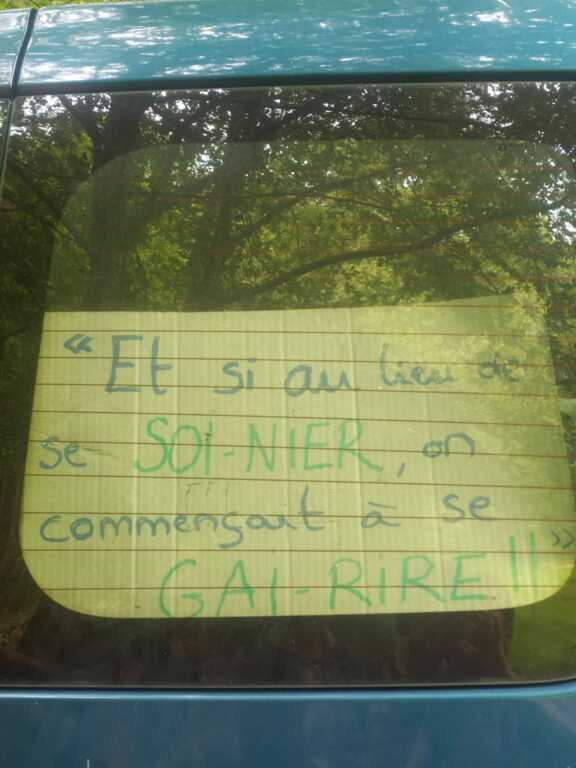 « Et si au lieu de
se SOI-NIER, on
commençait à se
GAI-RIRE !! »